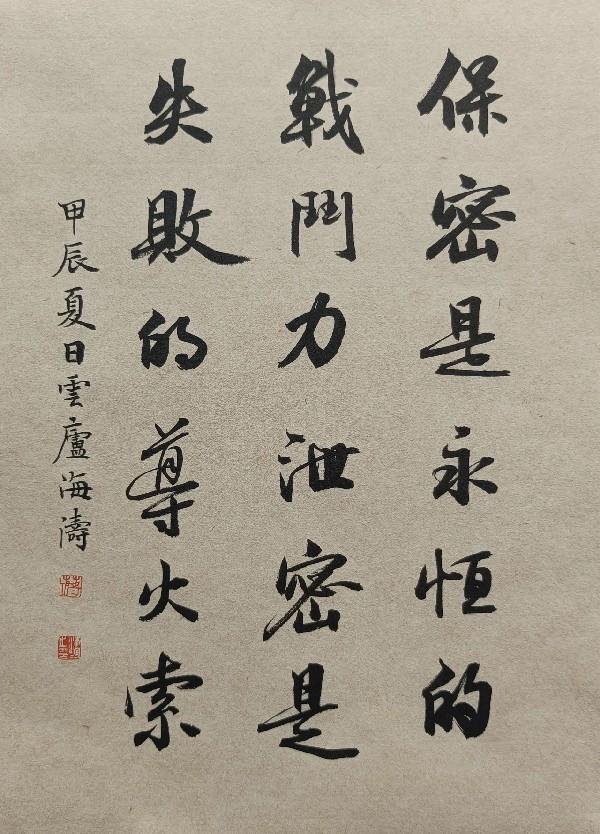 保密是永恒的
戰鬥力泄密是
失敗的導火索
甲辰夏日雲廬海濤